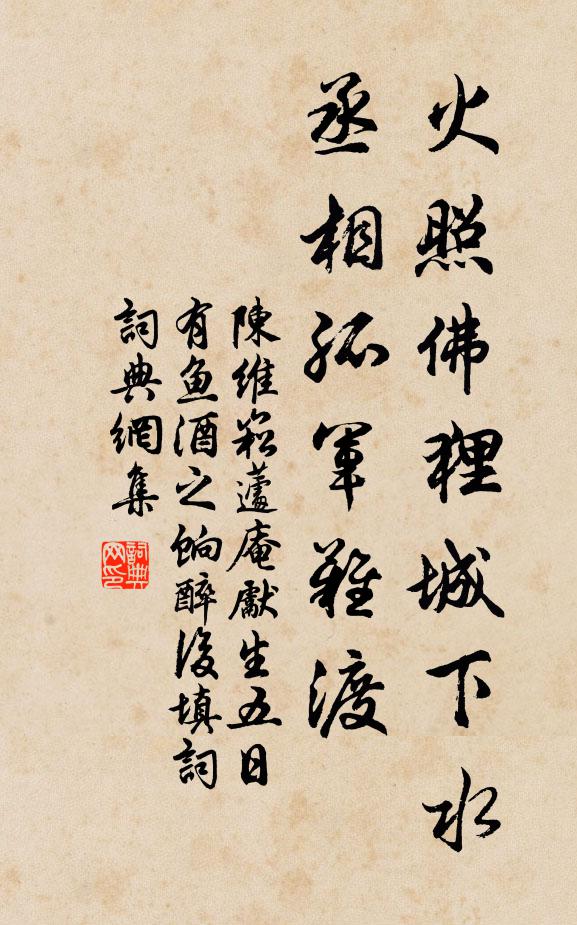 火照佛狸城下水
丞相孤軍難渡
陳維崧蘧庵獻生五日
有魚酒之餉醉後填詞
詞典網集
詞典
网印